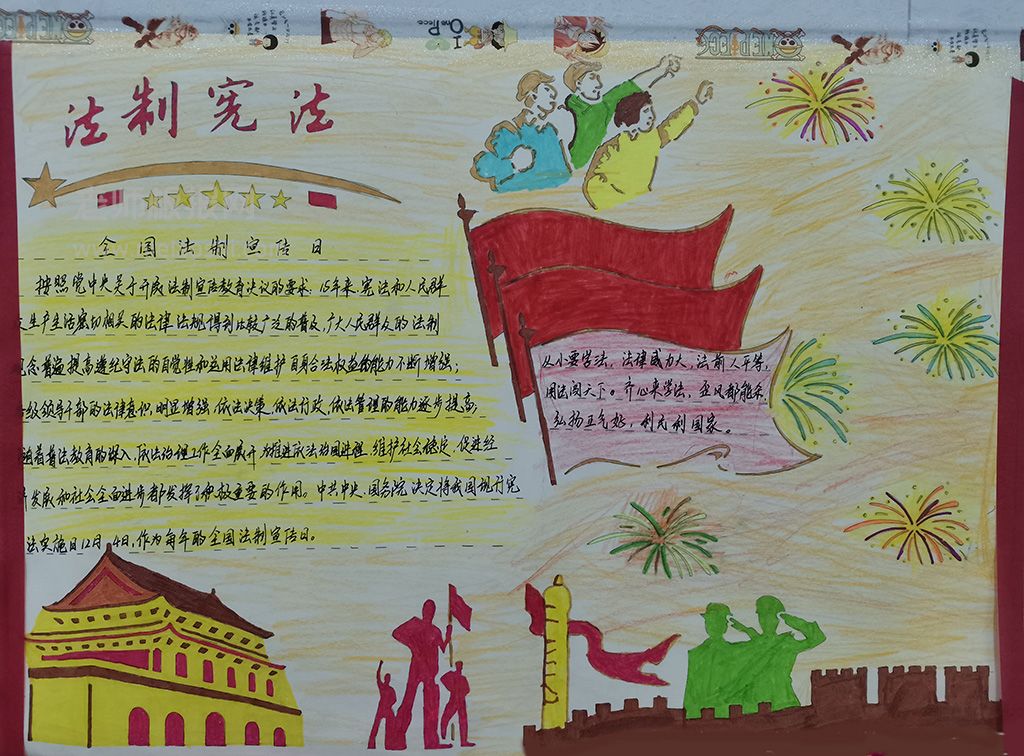 I
One Piece
ONE PIECE
法制宪法
全国法制宣传日
按照党中央关于开展法制宣传教育决议的要求,15年来,宪法和人民群
生产生活密切相关的法律法规得到比较广泛的普及,广大人民群众的法制
念普遍提高遵纪守法的自觉性和运用法律维护自身合法权益的能力不断增强;
级领导干部的法律意识,明显增强,依法决策,依法行政,依法管理的能力逐步提高,
着普法教育的深入,依法治理工作全面展开,为推进依法治国进程,维护社会稳定,促进经
发展和社会全面进步都发挥了积极重要的作用。中共中央、国务院决定将我国现行宪
法实施日12月4日,作为每年的全国法制宣传日。
从小要学法,法律威力大,法前人平等,
用法闯天下。齐心来学法,歪风都能杀,
弘扬正气好,利民利国家。